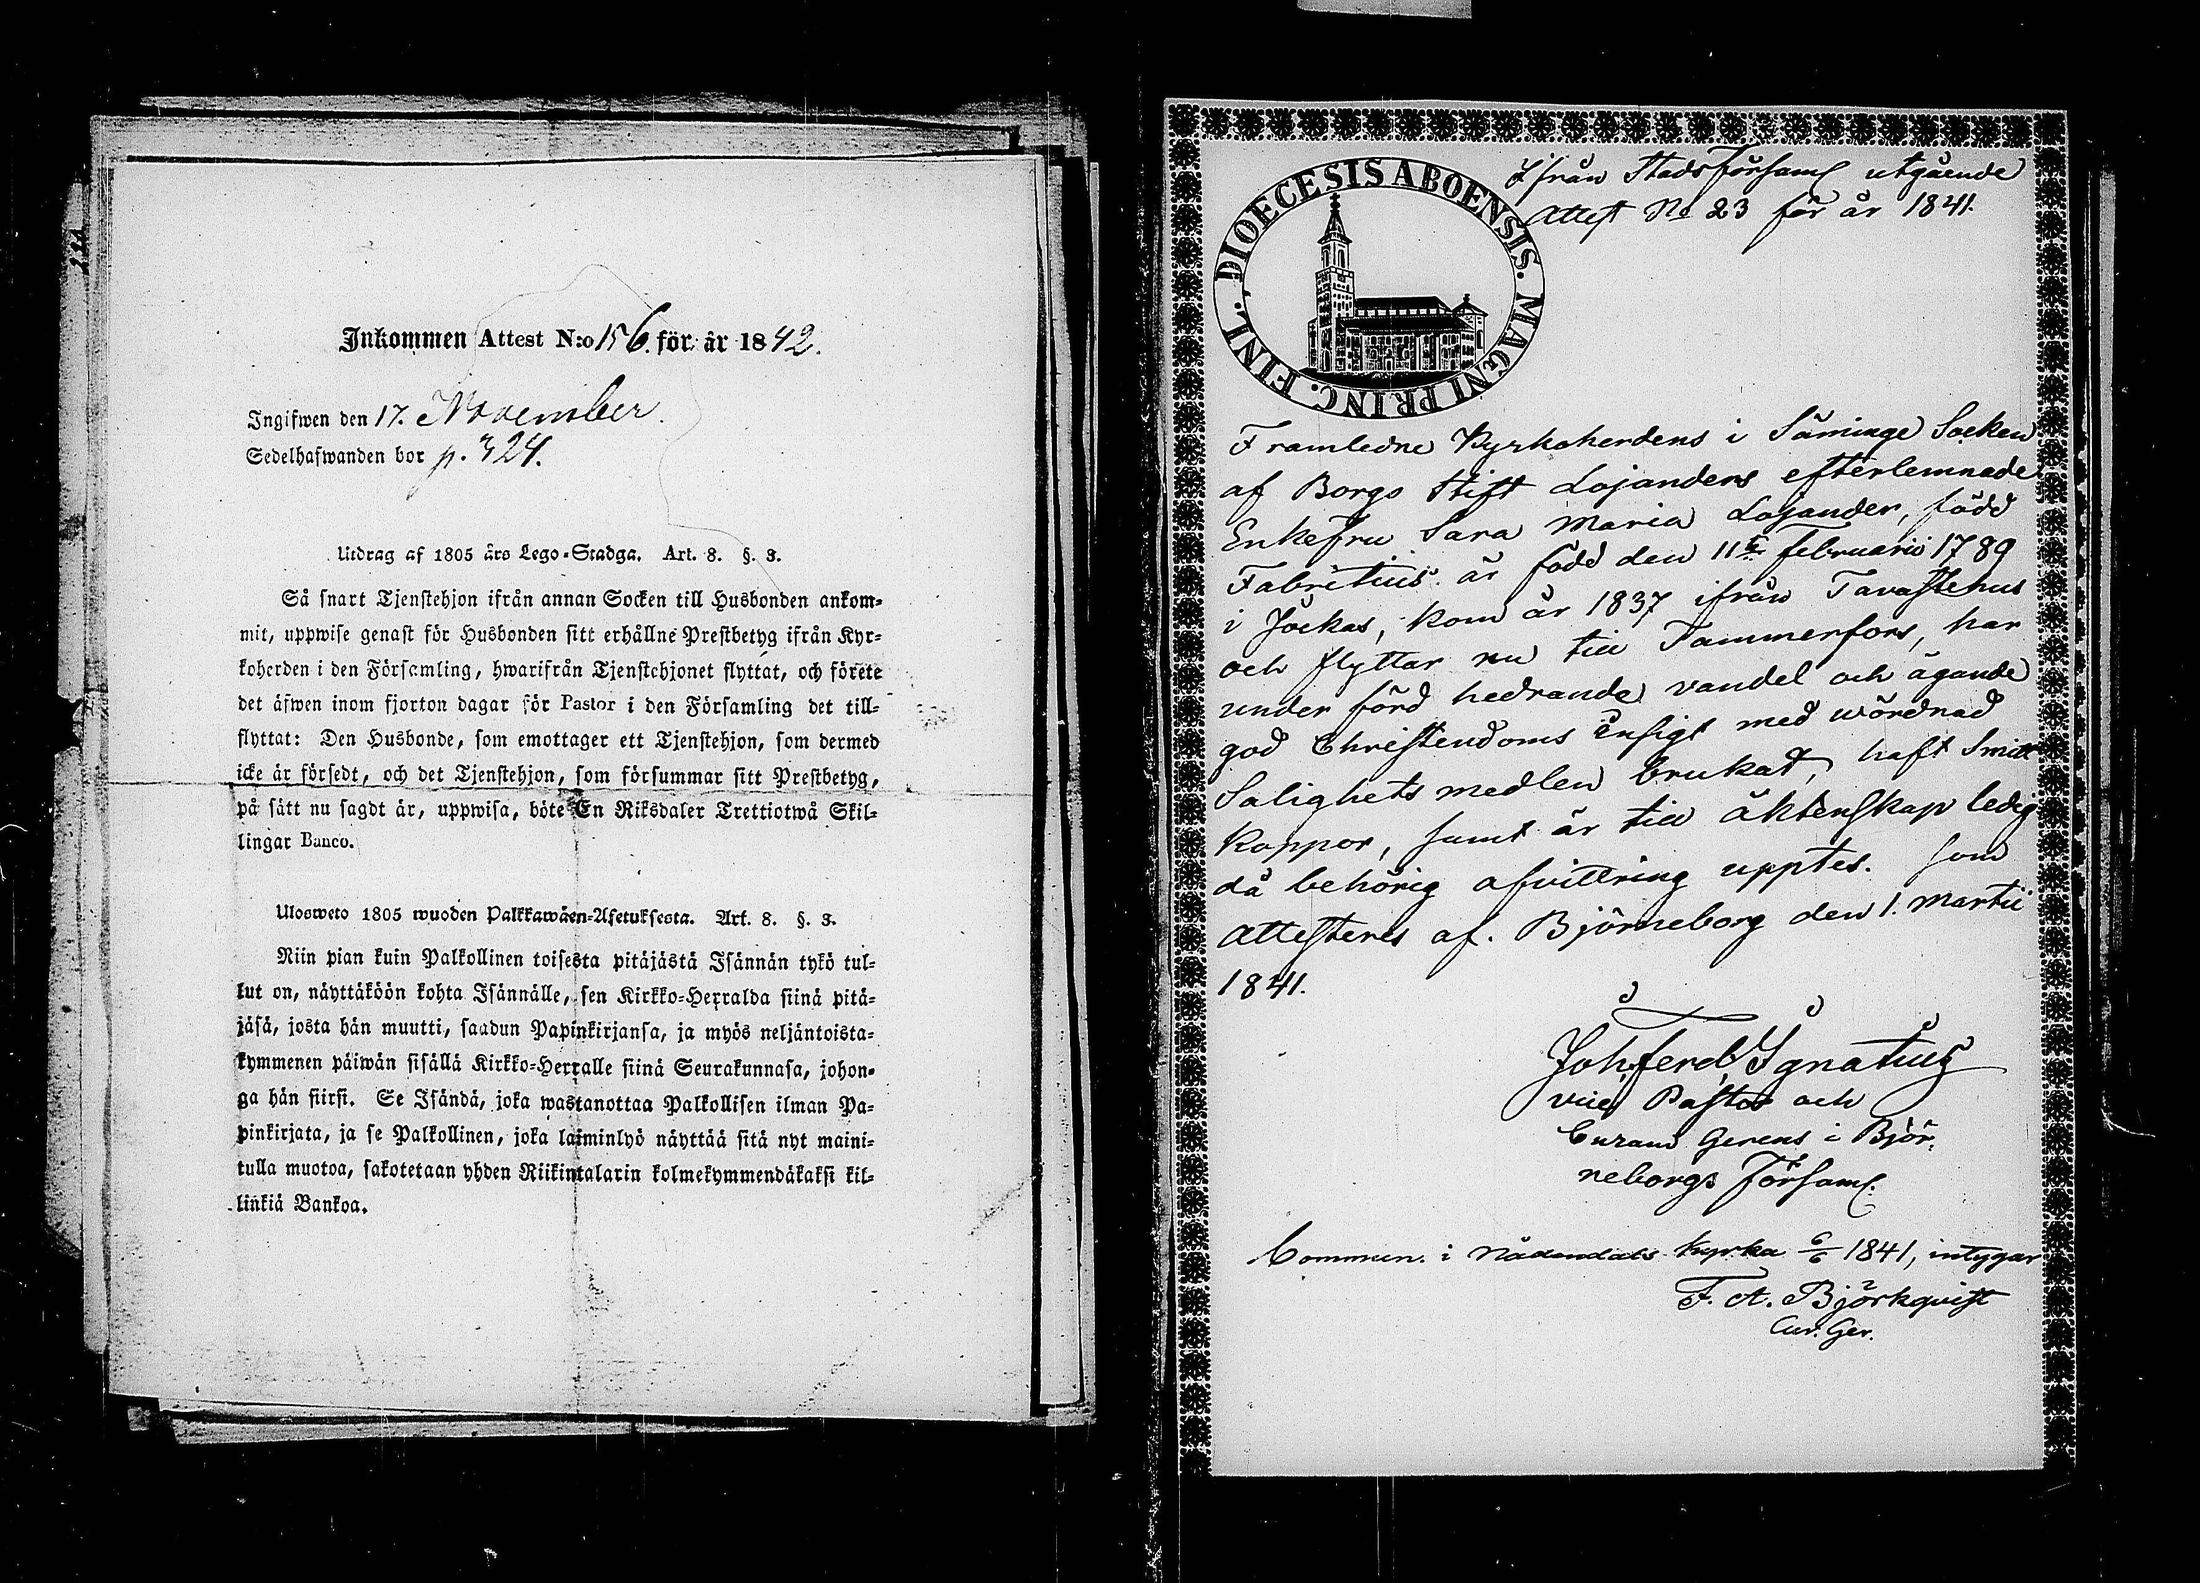 Inkommen Attest N:o 156. för år 1842.
Ingifwen den 17. November.
Sedelhafwanden bor p. 324.
Utdrag af 1805 års Lego-Stadga. Art. 8. §. 3.
Så snart Tjenstehjon ifrån annan Socken till Husbonden ankom-
mit, uppwise genast för Husbonden sitt erhållne Prestbetyg ifrån Kyr-
koherden i den Församling, hwarifrån Tjenstehjonet flyttat, och förete
det äfwen inom fjorton dagar för Pastor i den Församling det till-
flyttat: Den Husbonde, som emottager ett Tjenstehjon, som dermed
icke är försedt, och det Tjenstehjon, som försummar sitt Prestbetyg,
på sätt nu sagdt är, uppwisa, böte En Riksdaler Trettiotwå Skil-
lingar Banco.
Ulosweto 1805 wuoden Palkkawäen-Asetuksesta. Art. 8. §. 3.
Niin pian kuin Palkollinen toisesta pitäjästä Isännän tykö tul-
lut on, näyttäköön kohta Isännälle, sen Kirkko-Herralda siinä pitä-
jäsä, josta hän muutti, saadun Papinkirjansa, ja myös neljäntoista-
kymmenen päiwän sisällä Kirkko-Herralle siinä Seurakunnasa, johon-
ga hän siirsi. Se Isändä, joka wastanottaa Palkollisen ilman Pa-
pinkirjata, ja se Palkollinen, joka laiminlyö näyttää sitä nyt maini-
tulla muotoa, sakotetaan yhden Riikintalarin kolmekymmendäkaksi kil-
linkiä Bankoa.
DIOECESIS ABOENSIS. MAGNI PRINC. FINL.
Ifrån Stadsförsaml utgående
Attest No 23 för år 1841.
Framledne Kyrkoherdens i Säminge Socken
af Borgo Stift Lojanders efterlemnade
Enkefru Sara Maria Lojander, född
Fabritius är född den 11te Februarii 1789
i Jockas, kom år 1837 ifrån Tavastehus
och flyttar nu till Tammerfors, har
under förd hedrande vandel och ägande
god Christendoms Insigt med wördnad
Salighets medlen brukat, haft Smitt
koppor, samt är till äktenskap ledig
då behörig afvittring upptes. Som
attesteres af. Björneborg den 1. Martii
1841.
Joh, Ferd, Ignatius
vice Pastor och
Curam Gerens i Björ-
neborgs Församl.
Commun. i Nådendals kyrka 6/6 1841, intygar
F. A. Björkqvist
Cur. Ger.